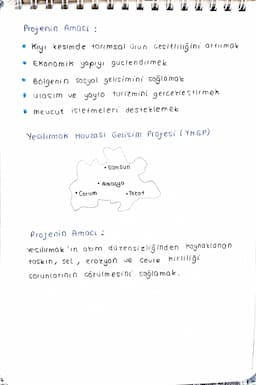 Projenin Amacı :
• Kıyı kesimde tarımsal ürün çeşitliliğini artırmak
• Ekonomik yapıyı güçlendirmek
• Bölgenin sosyal gelişimini sağlamak
• ulaşım ve yayla turizmini gerçekleştirmek
• mevcut işletmeleri desteklemek
Yeşilırmak Havzası Gelişim Projesi (YHGP)
• Samsun
• Amasya
• Çorum • Tokat
Projenin Amacı :
Yeşilırmak'ın akım düzensizliğinden kaynaklanan
taşkın, sel, erozyon ve çevre kirliliği
sorunlarının çözülmesini sağlamak.